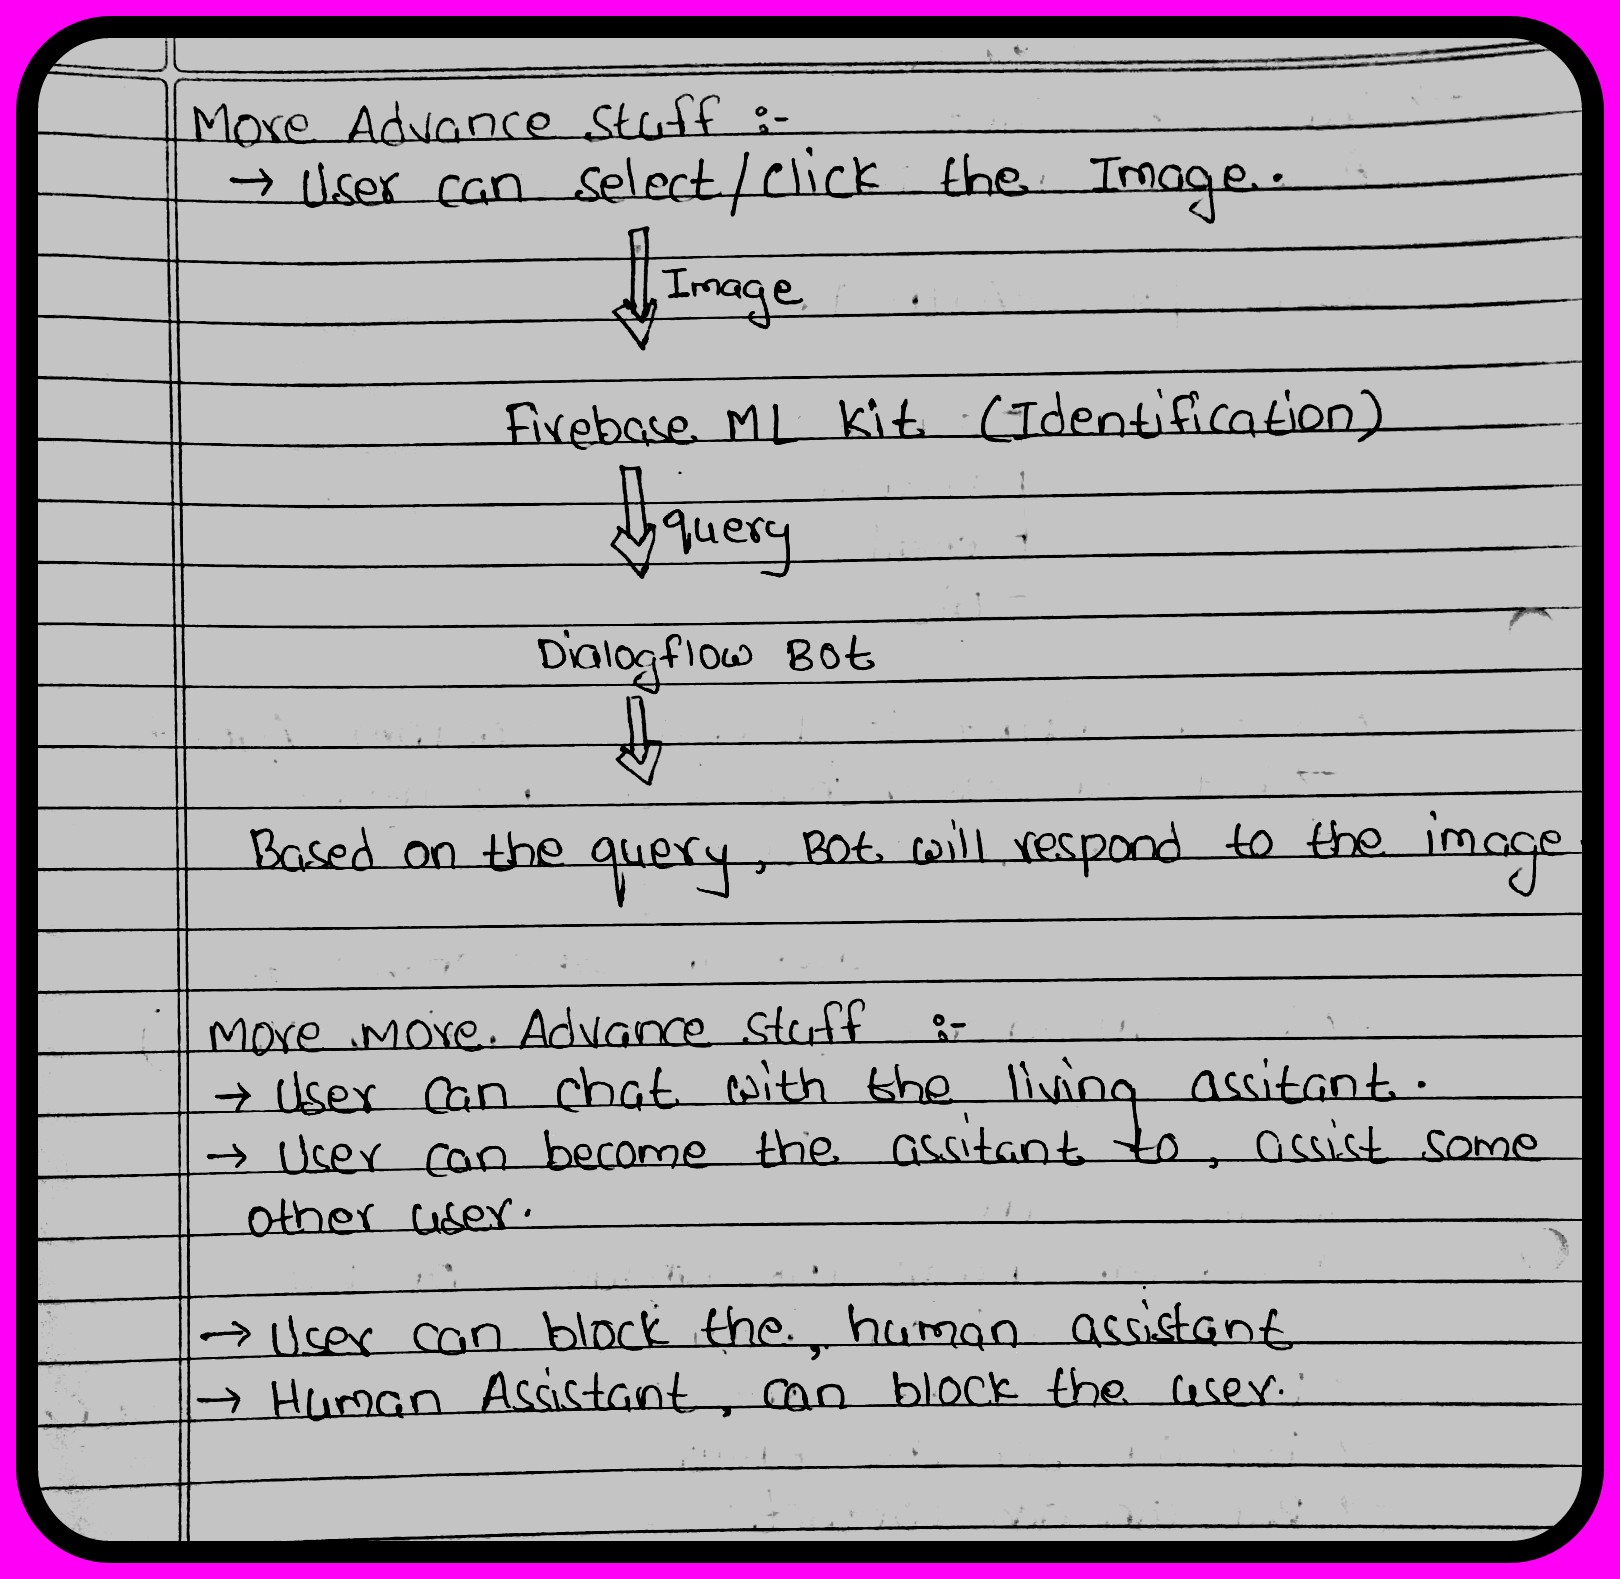 More Advance Stuff :-
→ User can select/click the Image.
Image
Firebase ML Kit (Identification)
query
Dialogflow Bot
Based on the query, Bot will respond to the image
More more Advance stuff :-
→ User can chat with the living assitant.
→ User can become the assitant to, assist some
other user.
→ User can block the, human assistant
→ Human Assistant, can block the user.